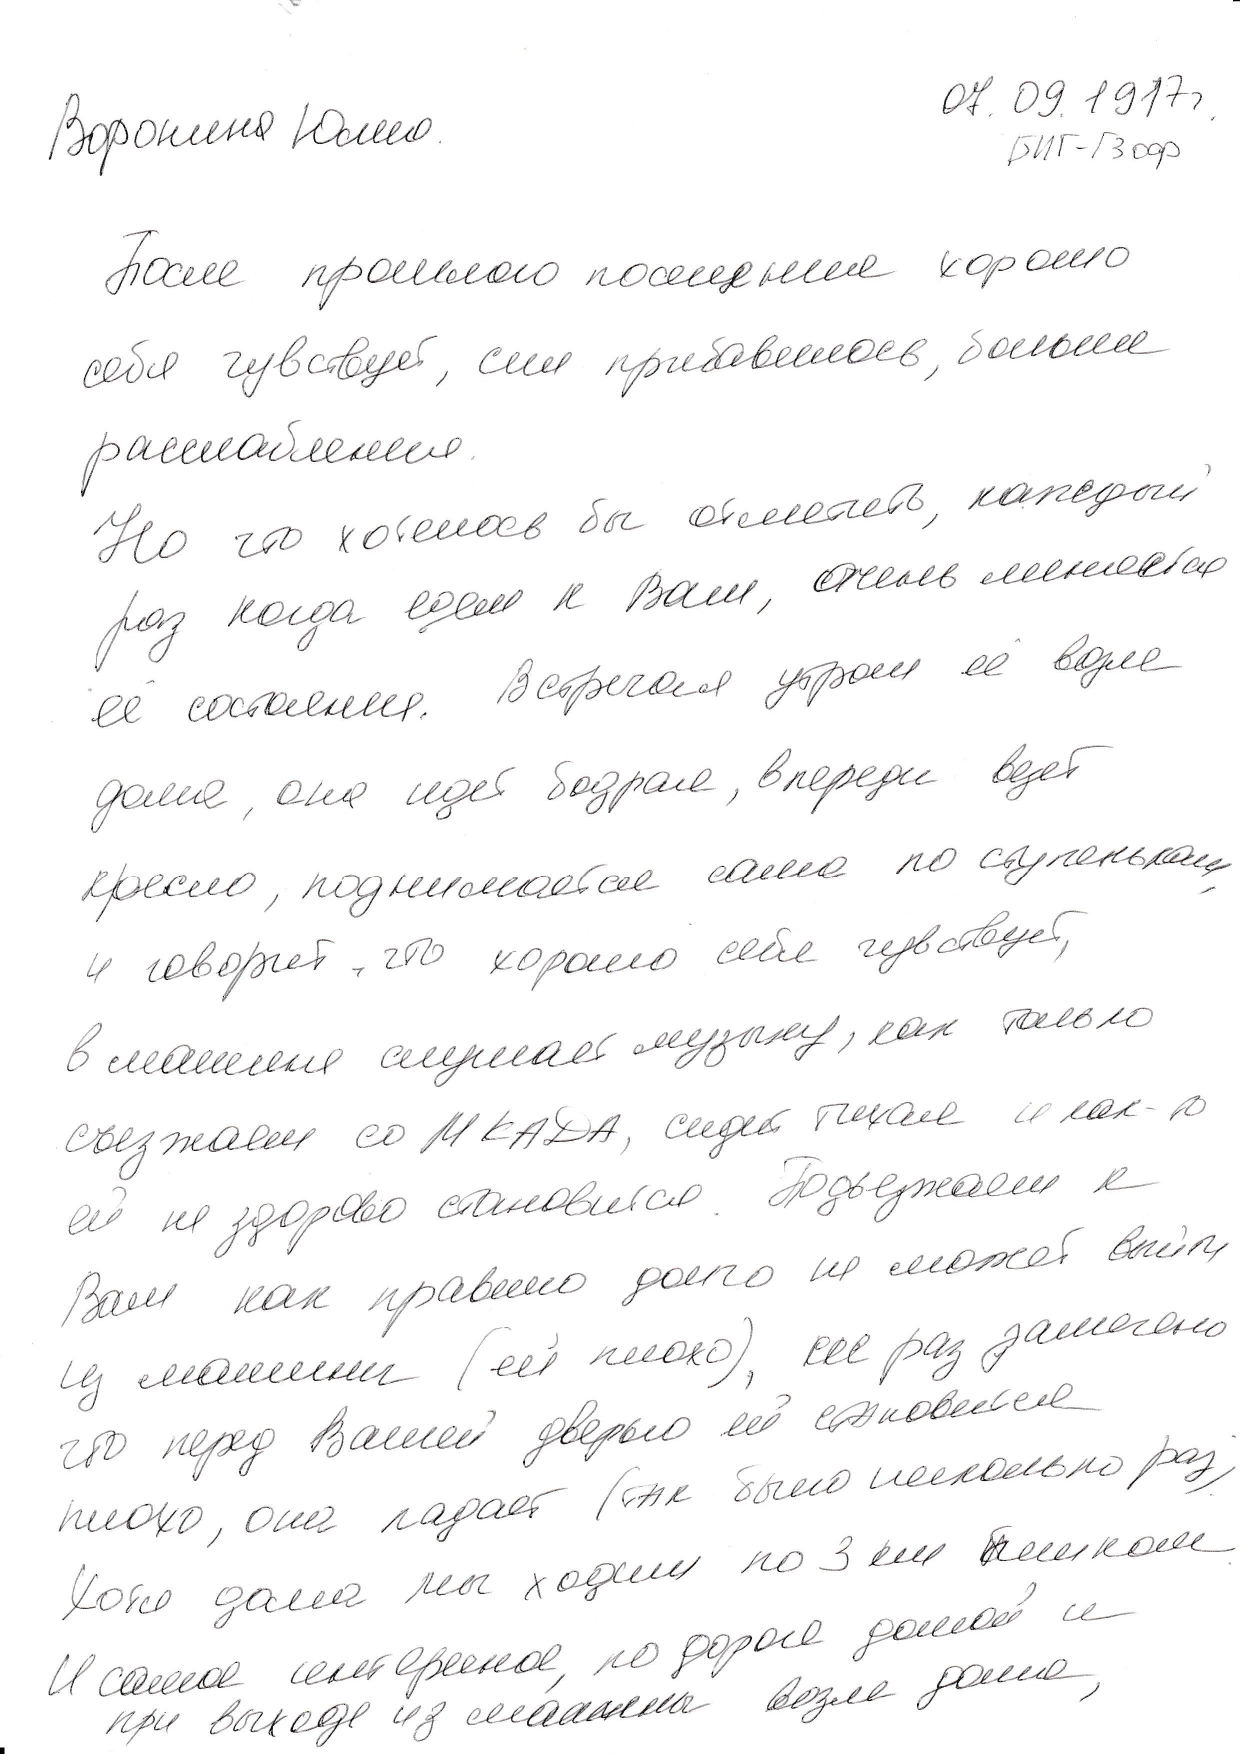 Воронина Юлия.
07.09.1917г.
После прошлого посещения хорошо
себя чувствует, сил прибавилось, больше
расслабления.
Но что хотелось бы отметить, каждый
раз когда едем к Вам, очень меняется
её состояния. Встречая утром её возле
дома, она идет бодрая, впереди везёт
кресло, поднимается сама по ступенькам,
и говорит, что хорошо себя чувствует,
в машине слушает музыку, как только
съезжаем со МКАДА, сидит тихая и как-то
ей не здорово становится. Подъезжаем к
Вам как правило долго не может выйти
из машины (ей плохо), раз замечено
что перед Вашей дверью ей становится
плохо, она падает (так было несколько раз,
Хотя дома мы ходим по 3 км пешком
И самое интересное, по дороге домой и
при выходе из машины возле дома,